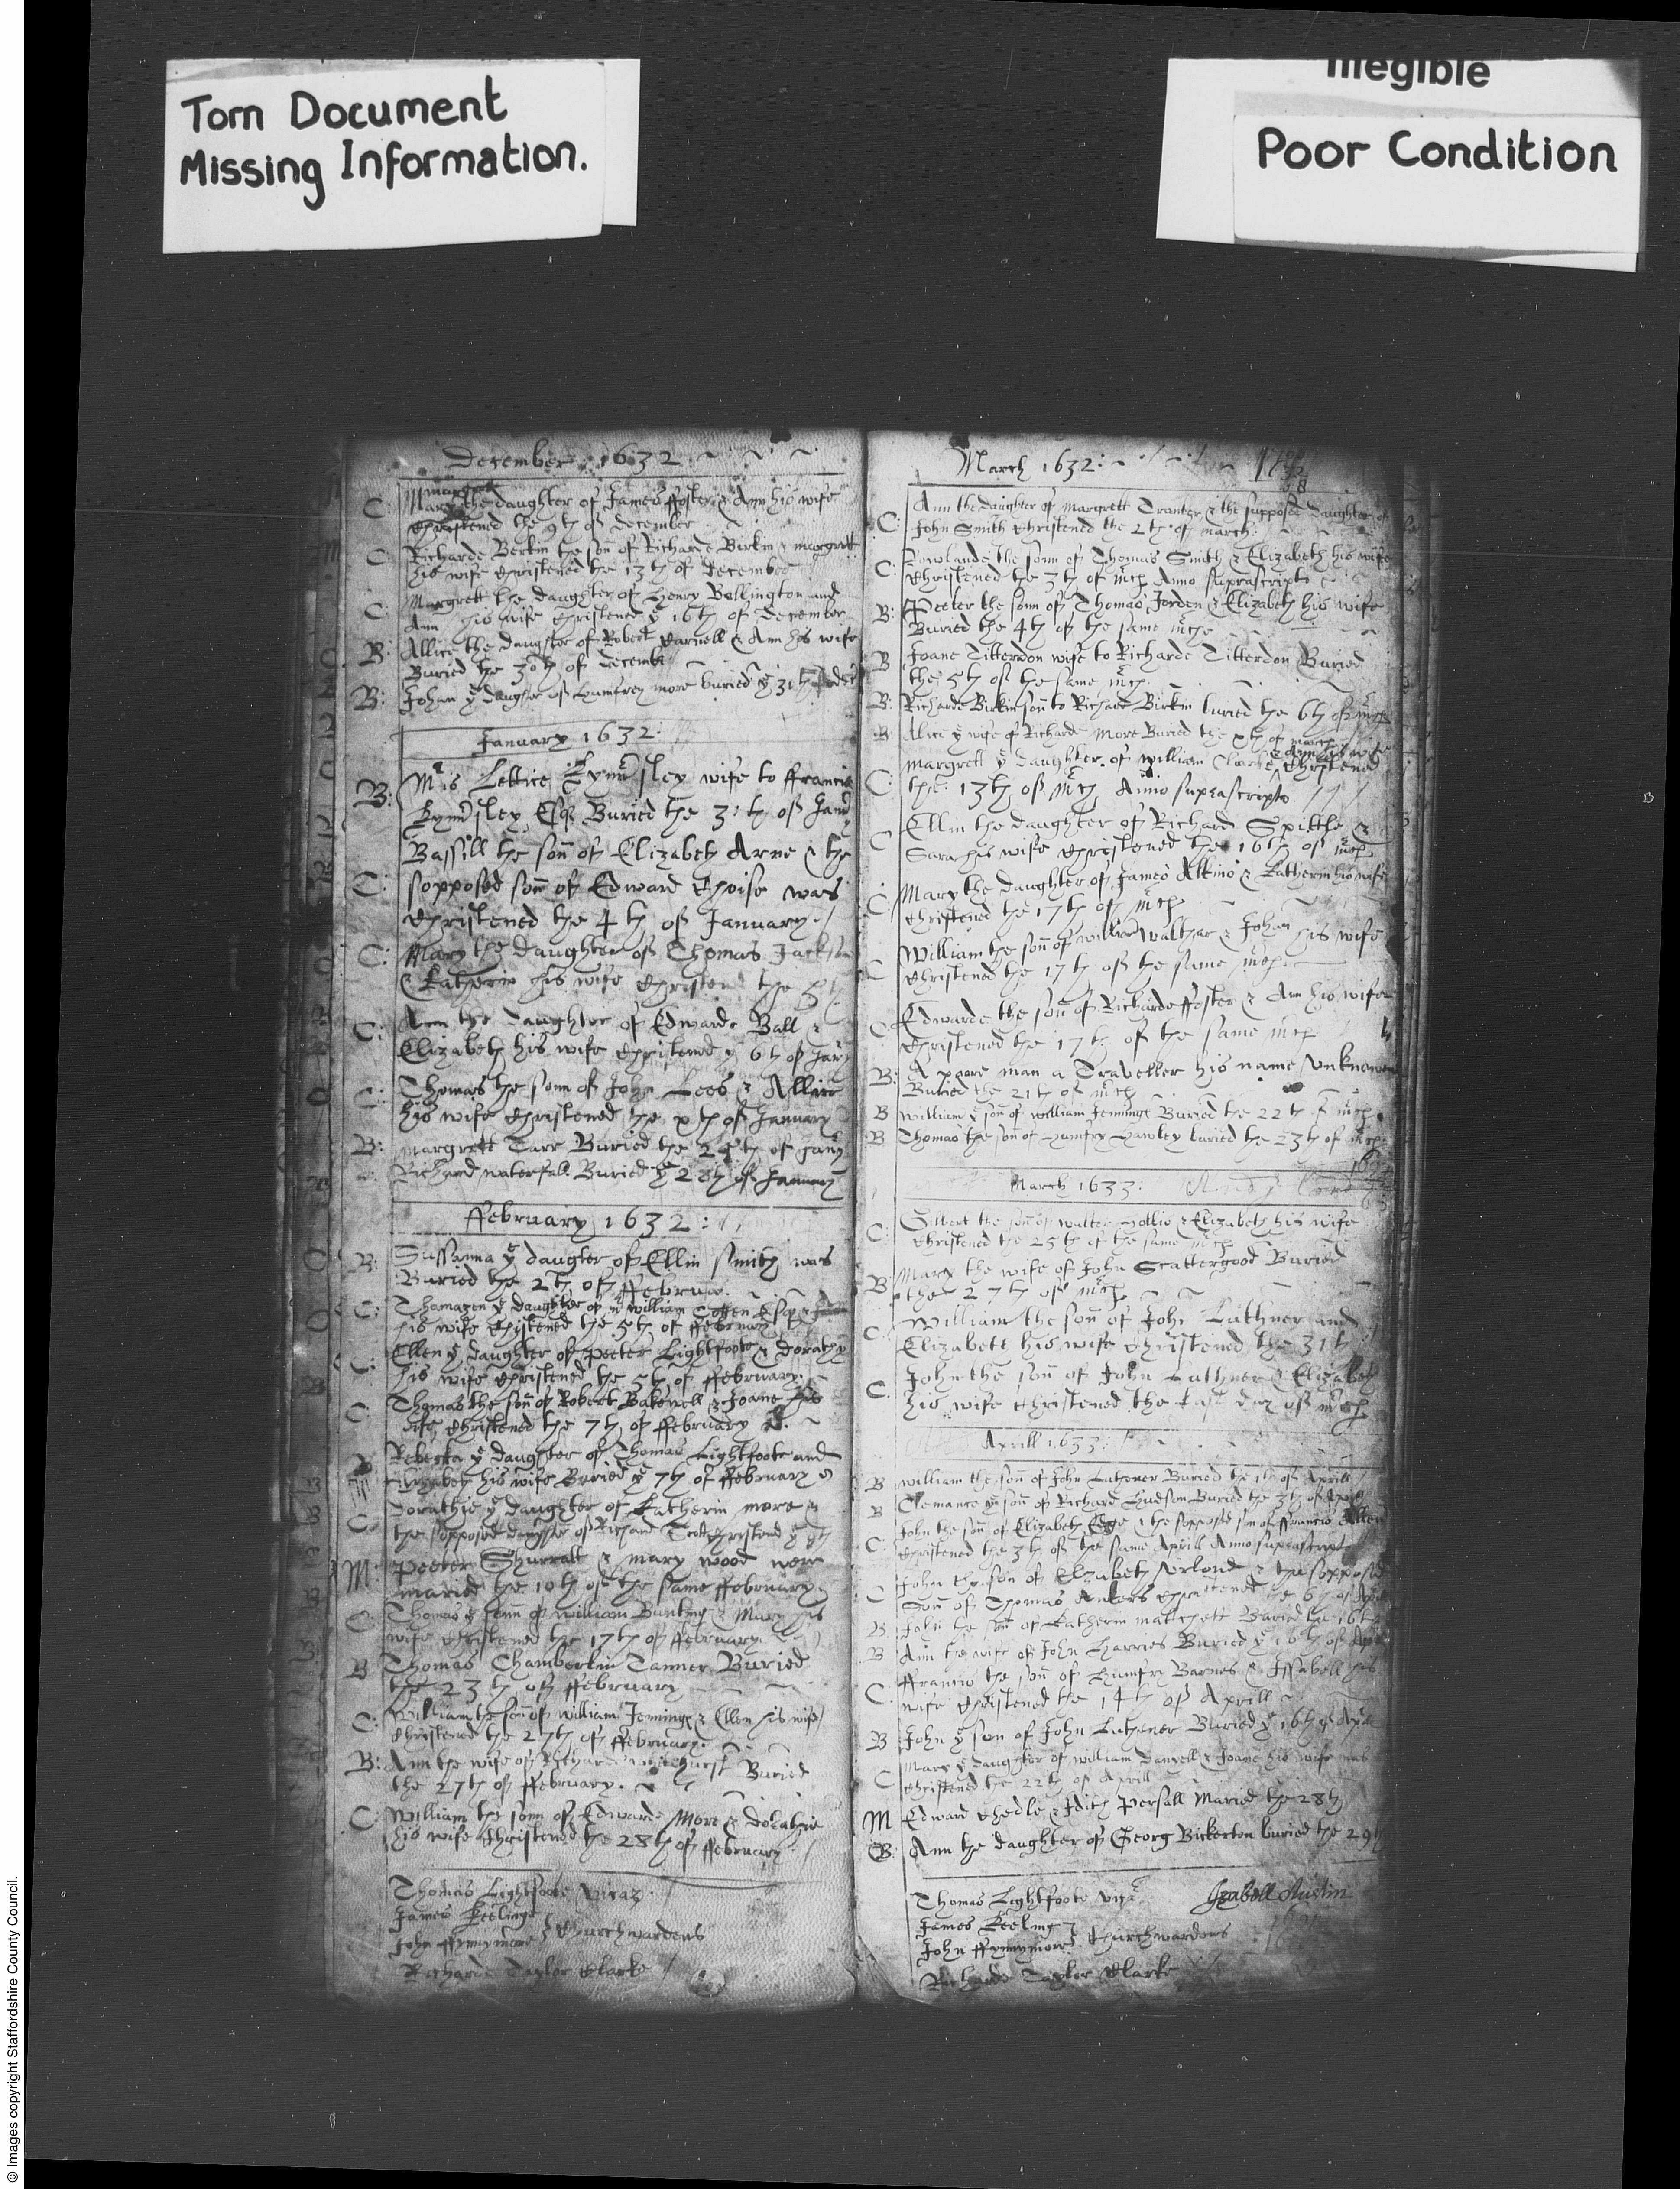 Torn Document
Missing Information.
Illegible
Poor Condition
December 1632
margrett
C: Mary the daughter of James ffoster & Ann his wife
Christened the 9th of december
C: Richarde Berkin the sonn of Richarde Birkin & margrett
his wife Christened the 13th of december
C: Margrett the daughter of Henry Bollington and
Ann his wife Christened ye 16th of december
B: Allice the daughter of Robert Parnell & Ann his wife
Buried the 30th of decembr
B: Johan ye daughter of Humfrey more buried ye 31th
January 1632:
B: Mris Lettice Kynnersley wife to ffrancis
Kynnersley Esqr Buried the 3:th of Janu
C: Bassill the sonn of Elizabeth Arne & the
sopposed sonn of Edward Choise was
Christened the 4th of January
C: Mary the daughter of Thomas Jackson
& Katherin his wife Christened the 5th
C: Ann the daughter of Edwarde Ball &
Elizabeth his wife Christened ye 6th of Janu
C: Thomas the sonn of John Lees & Allice
his wife Christened the xth of January
B: margrett Tarr Buried the 24th of Janu
Richard waterfall Buried ye 28th of January
ffebruary 1632:
B: Sussanna ye daughter of Ellin Smith was
Buried the 2th of ffebruar.
C: Thomazen ye daughter of mr william Cotten Esqr &
his wife Christened the 5th of ffebruary
C: Ellen ye daughter of Peeter Lightfoote & dorathy
his wife Christened the 5th of ffebruary.
C: Thomas the sonn of Robert Bakewell & Joane his
wife Christened the 7th of ffebruary
B Rebecka ye daughter of Thomas Lightfoote and
Elizabeth his wife Buried ye 7th of ffebruary
C: Dorathie ye daughter of Katherin more &
the sopposed daughter of Richard Scott Christend ye 9th
M: Peeter Shurratt & mary wood were
maried the 10th of the same ffebruary
C: Thomas ye sonn of william Bunting & Mary his
wife Christened the 17th of ffebruary.
B Thomas Chamberlin Tanner Buried
the 23th of ffebruary
C: William the sonn of william Jenninge & Ellen his wife
Christened the 27th of ffebruary.
B: Ann the wife of Richarde whitehurst Buried
the 27th of ffebruary.
C: William the sonn of Edwarde More & dorathie
his wife Christened the 28th of ffebruary
Thomas Lightfoote Vicar
James Keelinge
John ffynnymore } Churchwardens
Richarde Taylor Clarke
March 1632:
C: Ann the daughter of Margrett Tranter & the supposed daughter of
John Smith Christened the 2th of march:
C: Rowlande the sonn of Thomas Smith & Elizabeth his wife
Christened the 3th of mch Anno suprascripto
B: Peeter the sonn of Thomas Jorden & Elizabeth his wife
Buried the 4th of the same mche
B Joane Titterdon wife to Richarde Titterdon Buried
the 5th of the same mch.
B: Richarde Birkin sonn to Richard Birkin buried the 6th of mch
B Alice ye wife of Richarde More Buried the xth of march
& Ann his wife
C: Margrett ye daughter of William Clarke Christened
the 13th of mch Anno suprascripto
C Ellin the daughter of Richard Spittle &
Sara his wife Christened the 16th of mch
C Mary the daughter of James Alkins & Katherin his wife
Christened the 17th of mch
C William the sonn of william Walthar & Johan his wife
Christened the 17th of the same mch
C Edwarde the sonn of Richarde ffoster & Ann his wife
Christened the 17th of the same mch
B: A poore man a Traveller his name Unknowen
Buried the 21th of mch
B William ye sonn of william Jenninge Buried the 22th of mch
B Thomas the sonn of Humfry Hawley buried the 23th of mch
March 1633:
C: Gilbert the sonn of walter Hollis & Elizabeth his wife
Christened the 25th of the same mch
B Mary the wife of John Scattergood Buried
the 27th of mch
C: William the sonn of John Lathner and
Elizabeth his wife Christened the 31th
C: John the sonn of John Lathner & Elizabeth
his wife Christened the last day of mch
Aprill 1633:
B William the sonn of John Luthener Buried the 1th of Aprill
B Clemance ye sonn of Richard Hudson Buried the 3th of Aprill
C: John the sonn of Elizabeth Edge & the sopposed sonn of ffrancis Allen
Christened the 3th of the same Aprill Anno suprascripto
C John the son of Elizabeth Norland & the sopposed
Sonn of Thomas Ankers Christened the 6th of Apr
B John the sonn of Katherin mattchett Buried the 16th
B Ann the wife of John Harries Buried ye 16th of Apr
C: ffrancis the sonn of Humfry Barnes & Issabell his
wife Christened the 14th of Aprill
B John ye son of John Luthener Buried ye 16th of Aprill
C Mary ye daughter of william Danyell & Joane his wife was
Christened the 22th of Aprill
M Edward Chedle & Edith Persall Maried the 28th
B: Ann the daughter of Georg Bickerton buried the 29th
Thomas Lightfoote Vicar
Izabell Austin
James Keeling
John ffynnymore } Churchwardens
Richarde Taylor Clarke
© Images copyright Staffordshire County Council.